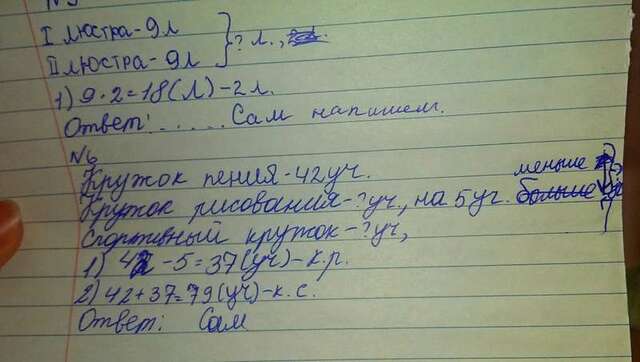 I люстра-9л
II люстра-9л } ? л.,
1) 9·2=18(л)-2л.
Ответ: ..... Сам напишем.
№6
Кружок пения-42уч.
Кружок рисования-?уч., на 5уч. меньше
Спортивный кружок-?уч,
1) 42-5=37(уч)-к.р.
2) 42+37=79(уч)-к.с.
Ответ: Сам